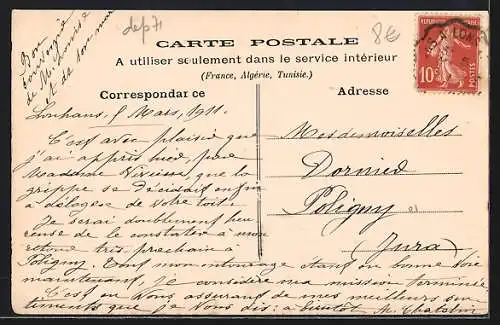 Bon
souvenir
de M. Louise
et de son mari
dep 71
8€
CARTE POSTALE
A utiliser seulement dans le service intérieur
(France, Algérie, Tunisie.)
Correspondance
Adresse
REPUBLIQUE FRANÇAISE
10c
POSTES
Louhans, 5 Mars, 1911.
C'est avec plaisir que
j'ai appris hier, par
Madame que la
grippe se décidait enfin
à déloger de votre toit.
Je serai doublement heu
reuse de le constater à mon
retour très prochain à
Poligny. Tout mon entourage étant en bonne voie
maintenant, je considère ma mission terminée
C'est en vous assurant de mes meilleurs sen
timents que je vous dis: à bientôt M.
Mesdemoiselles
Dornier
Poligny
(Jura)